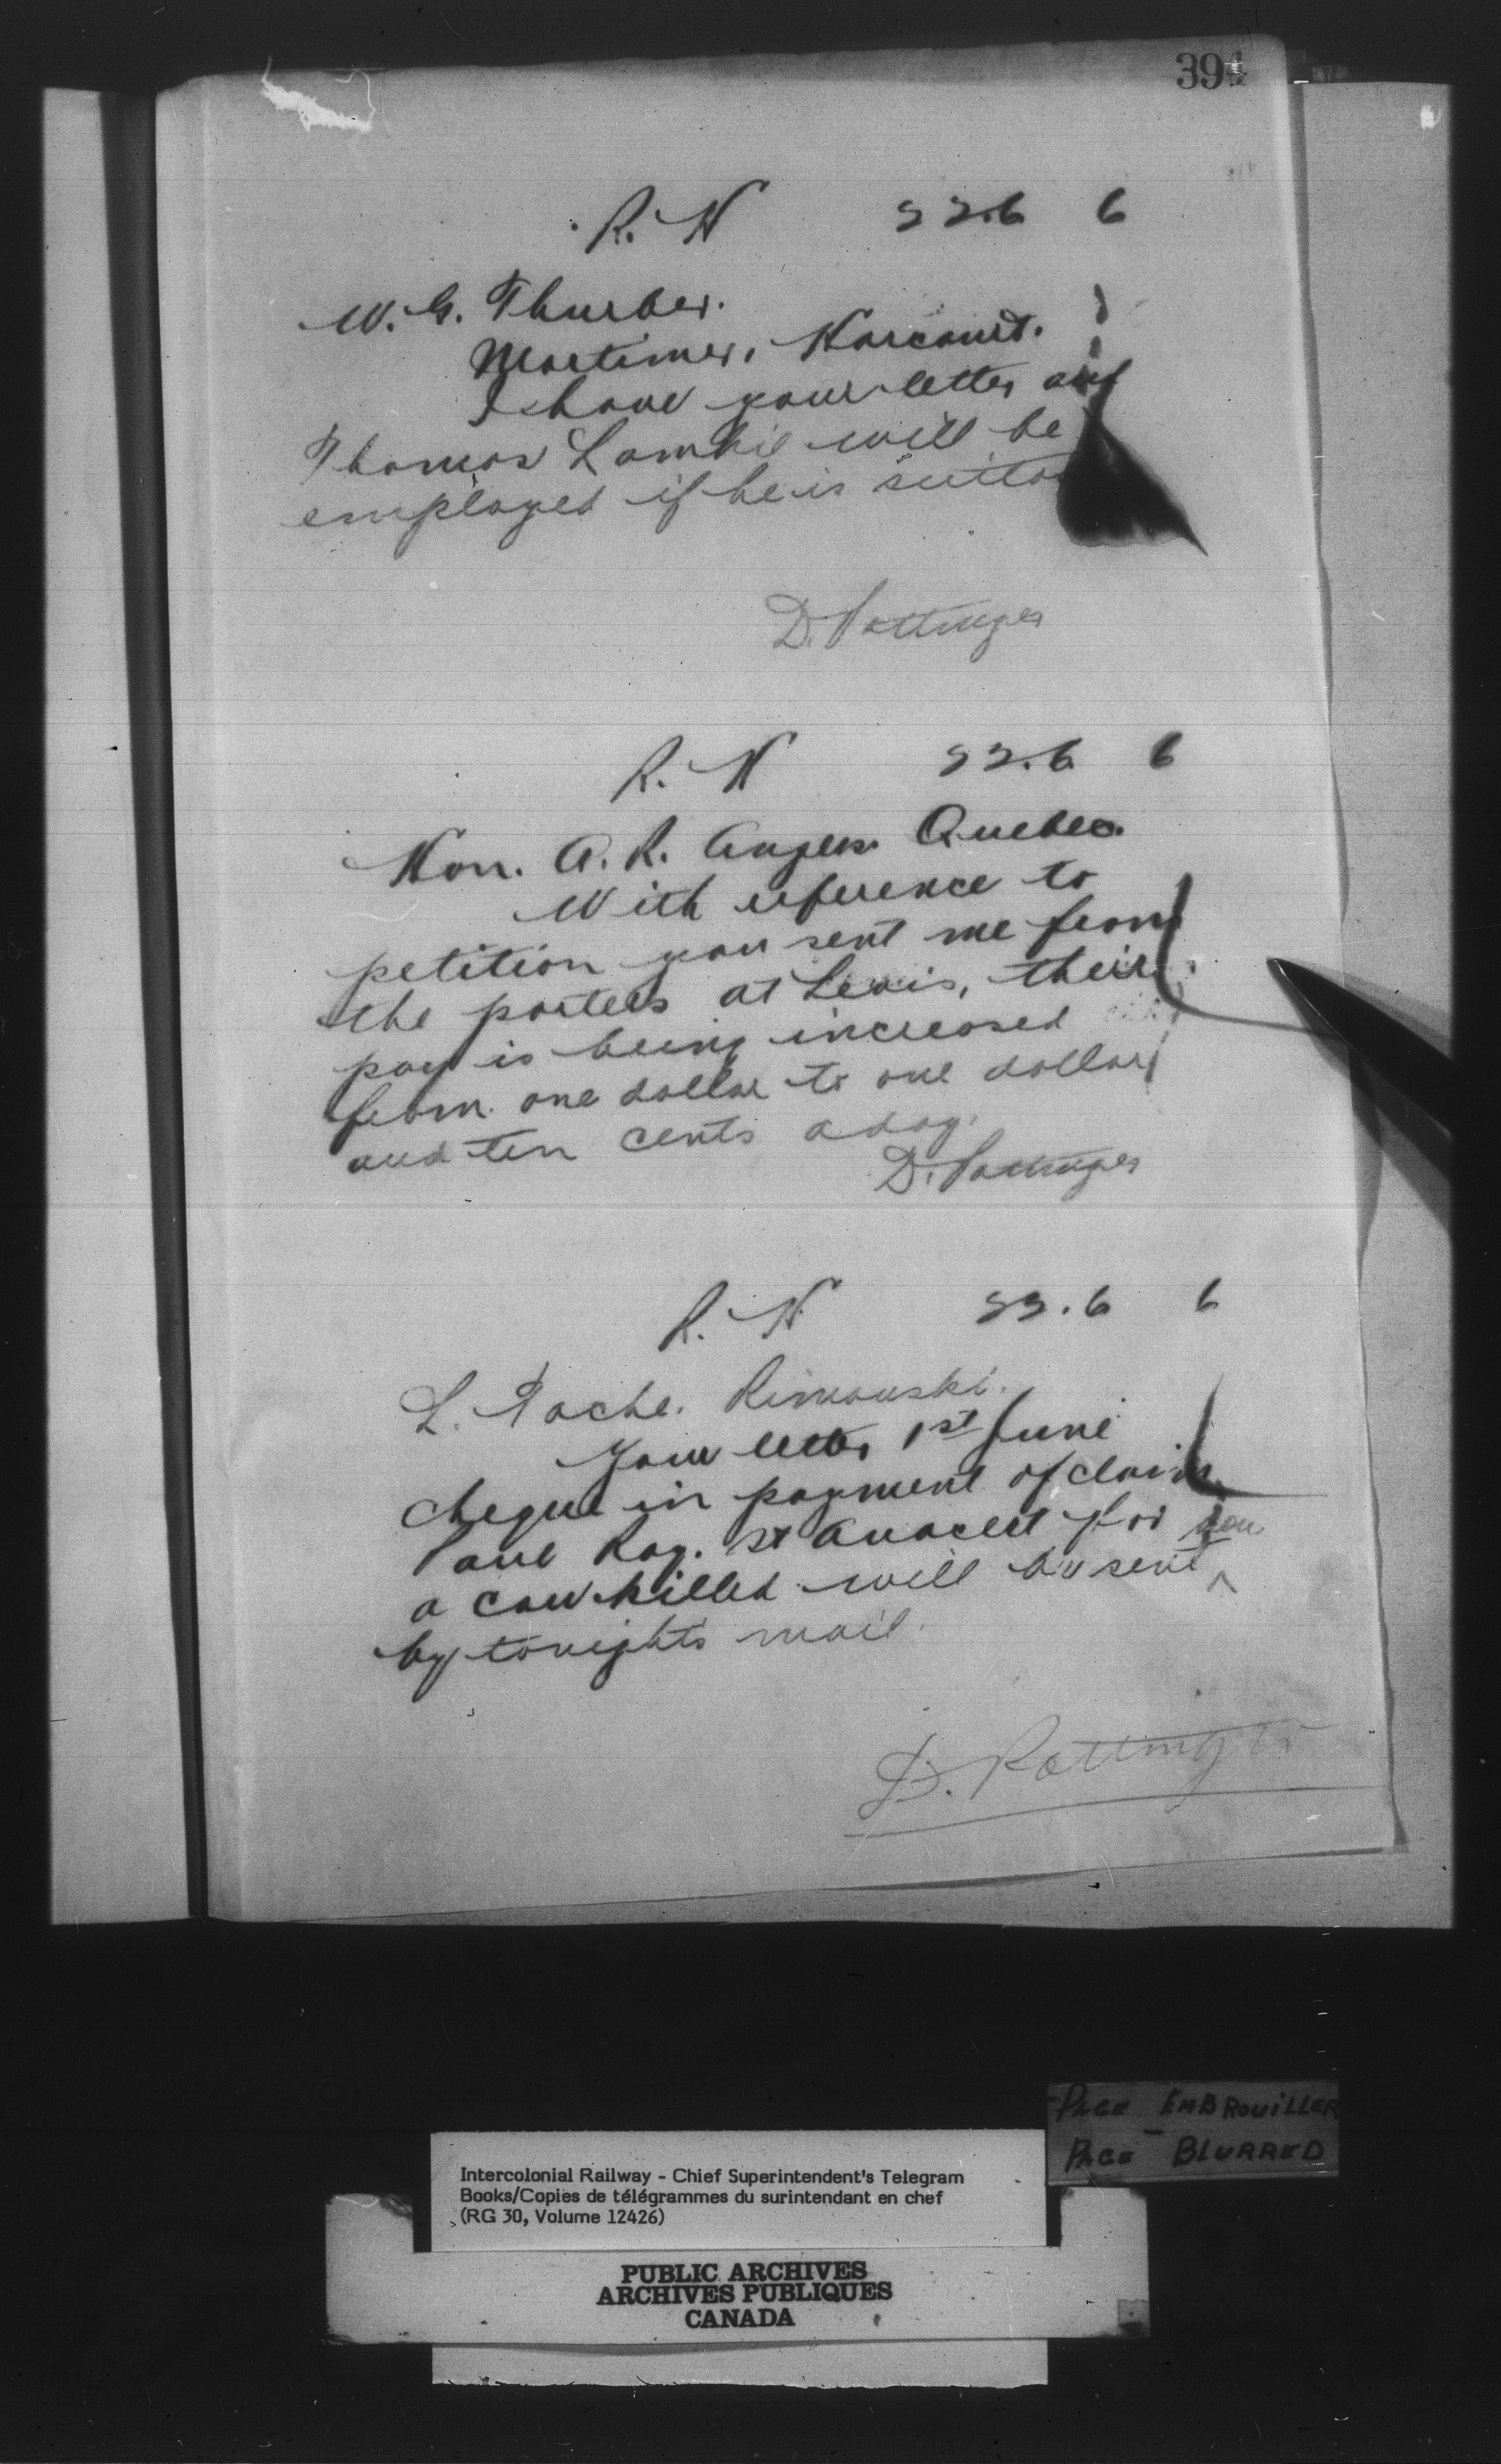 394
R. N 22.6 6
W. G. Thurber.
Mortimer, Harcourt.
I have your letter and
Thomas Lambie will be
employed if he is
D. Pottinger
R. N 22.6 6
Hon. A. R. Angers. Quebec.
With reference to
petition you sent me from
the porters at Levis, their
pay is being increased
from one dollar to one dollar
and ten cents a day.
D. Pottinger
R. N 22.6 6
L. Tache. Rimouski.
Your letter 1st June
cheque in payment of claim
Paul Roy. St Anaclet for
a cow killed will be sent you
by tonights mail.
D. Pottinger
PAGE EMBROUILLER
PAGE BLURRED
Intercolonial Railway - Chief Superintendent's Telegram
Books/Copies de télégrammes du surintendant en chef
(RG 30, Volume 12426)
PUBLIC ARCHIVES
ARCHIVES PUBLIQUES
CANADA